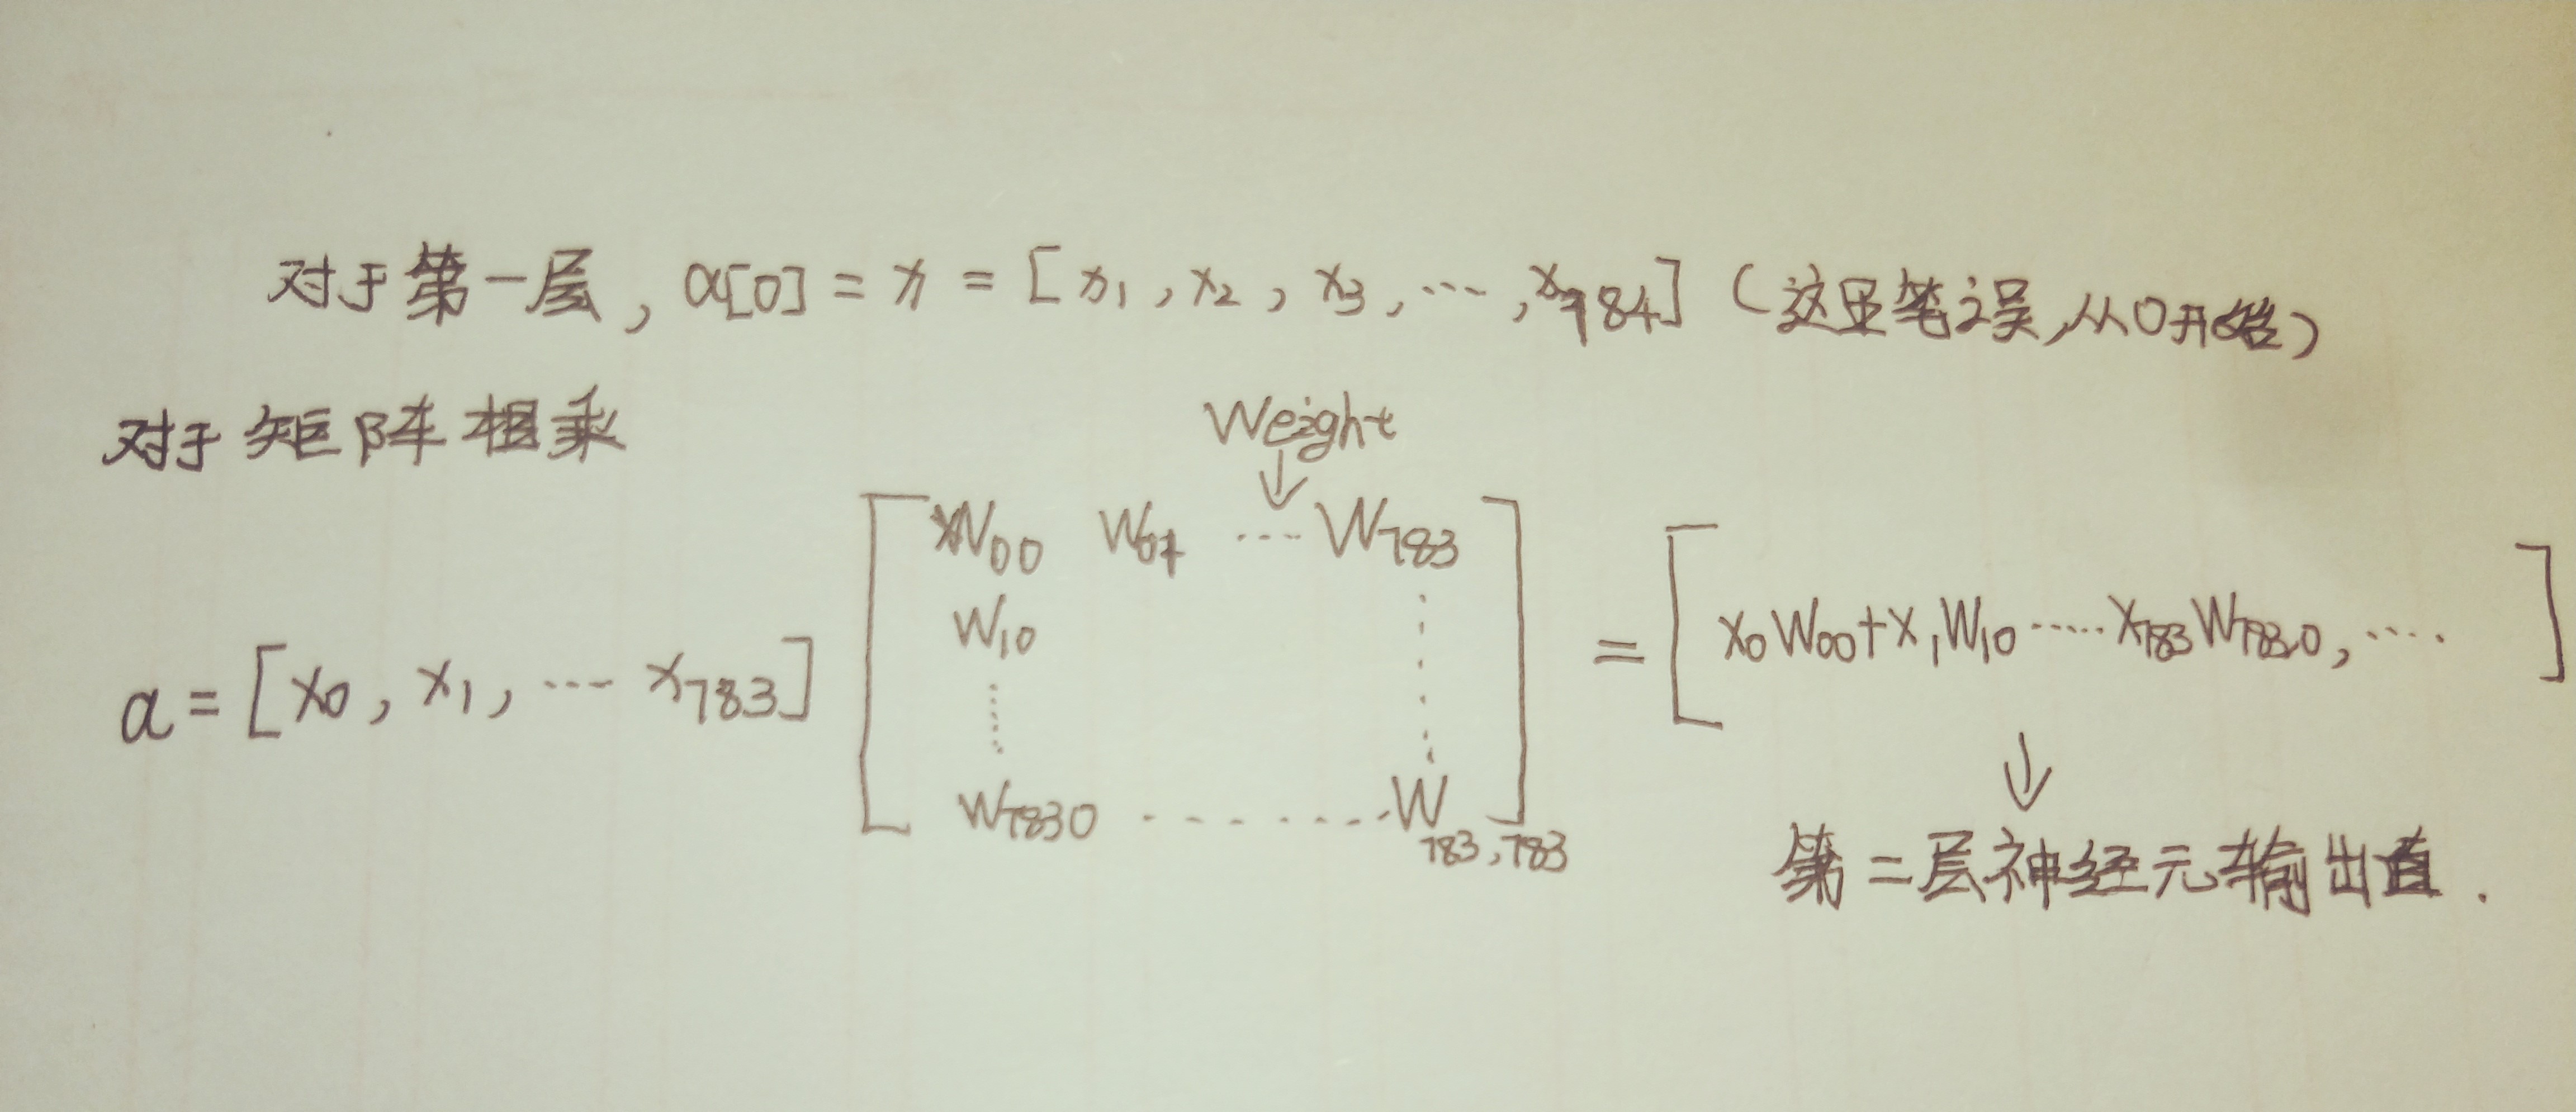 对于第一层，a[0] = x = [x1, x2, x3, ..., x784] (这里笔误,从0开始)
对于矩阵相乘
Weight
↓
W00 W01 ···· W783
W10
a = [x0, x1, ··· x783]
W7830 ········ W783,783
= [x0W00+x1W10·····x783W783,0, ····]
↓
第二层神经元输出值.